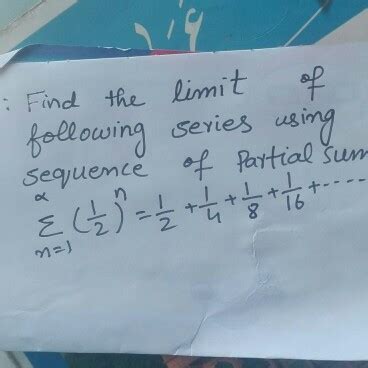 : Find the limit of
following series using
sequence of Partial Sum
∝
Σ (1/2)^n = 1/2 + 1/4 + 1/8 + 1/16 + -----
n=1